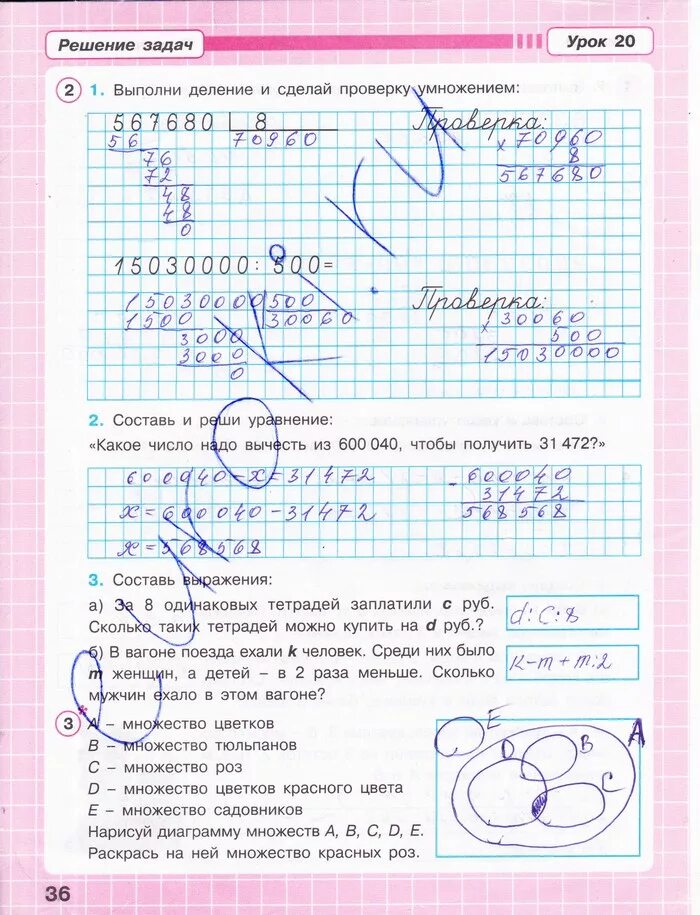 Решение задач
Урок 20
2 1. Выполни деление и сделай проверку умножением:
567680 8
56 70960
76
72
48
48
0
Проверка:
× 70960
8
567680
15030000 : 500=
15030000 500
1500 30060
3000
3000
0
Проверка:
× 30060
500
15030000
2. Составь и реши уравнение:
«Какое число надо вычесть из 600 040, чтобы получить 31 472?»
600040 - x = 31472
x = 600040 - 31472
x = 568568
- 600040
31472
568568
3. Составь выражения:
а) За 8 одинаковых тетрадей заплатили c руб.
Сколько таких тетрадей можно купить на d руб.?
d:C:8
б) В вагоне поезда ехали k человек. Среди них было
m женщин, а детей – в 2 раза меньше. Сколько
мужчин ехало в этом вагоне?
K-m+m:2
3 A – множество цветков
B – множество тюльпанов
C – множество роз
D – множество цветков красного цвета
E – множество садовников
Нарисуй диаграмму множеств A, B, C, D, E.
Раскрась на ней множество красных роз.
E
A
D
B
C
36